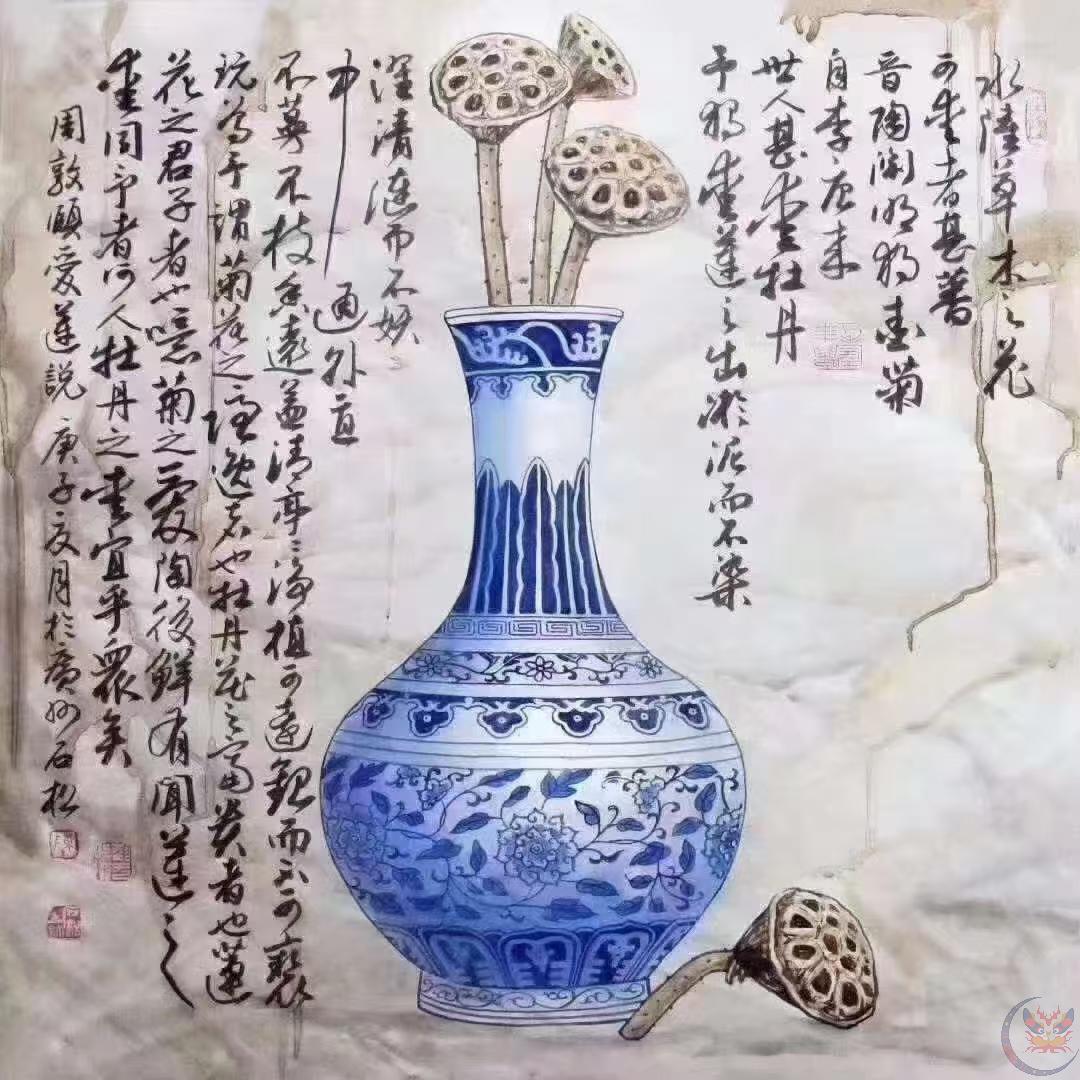 水陸草木之花
可愛者甚蕃
晉陶淵明独愛菊
自李唐来
世人甚愛牡丹
予独愛蓮之出淤泥而不染
濯清漣而不妖
中通外直
不蔓不枝香遠益清亭〻淨植可遠觀而不可褻
玩焉予謂菊花之隱逸者也牡丹花之富貴者也蓮
花之君子者也噫菊之愛陶後鮮有聞蓮之
愛同予者何人牡丹之愛宜乎眾矣
周敦頤愛蓮説 庚子夏月於廣州石松